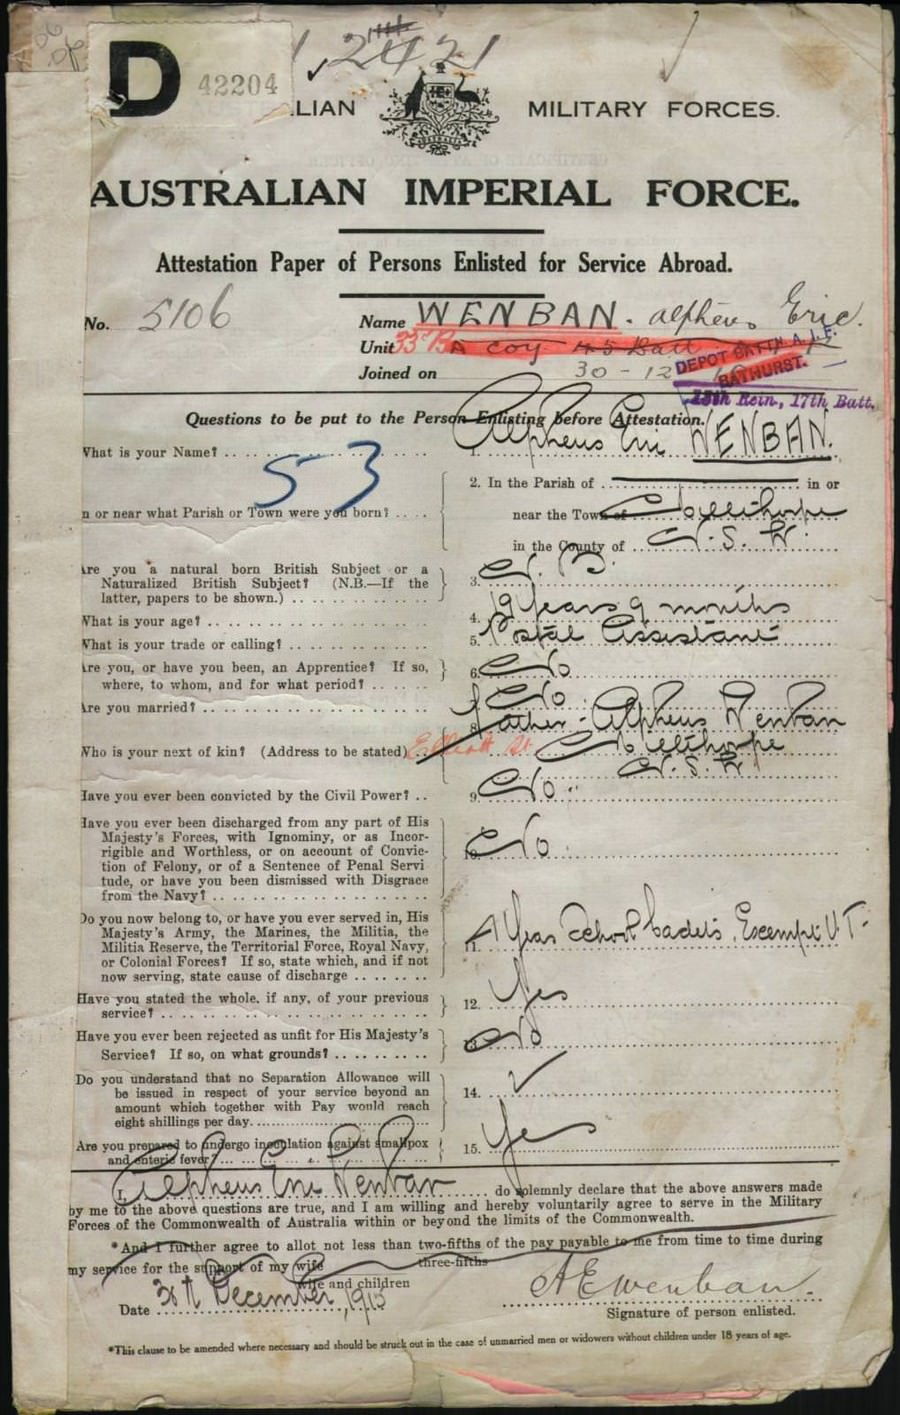 D 42204
2421
LIAN MILITARY FORCES.
AUSTRALIAN IMPERIAL FORCE.
Attestation Paper of Persons Enlisted for Service Abroad.
No. 5106
Name WENBAN. Alpheus Eric.
Unit A Coy 45 Batt
DEPOT BATTN A.I.F.
BATHURST.
Joined on 30-12
15th Rein, 17th Batt.
Questions to be put to the Person Enlisting before Attestation.
What is your Name? 1. Alpheus Eric WENBAN.
53
2. In the Parish of in or
n or near what Parish or Town were you born? near the Town of Millthorpe
in the County of N.S.W.
Are you a natural born British Subject or a
Naturalized British Subject? (N.B.—If the 3. N.B.
latter, papers to be shown.)
What is your age? 4. 19 Years 9 months
What is your trade or calling? 5. Postal Assistant
Are you, or have you been, an Apprentice? If so, 6. No
where, to whom, and for what period?
Are you married? No
8. Father - Alpheus Wenban
Who is your next of kin? (Address to be stated) Elliott St Millthorpe
N.S.W.
Have you ever been convicted by the Civil Power? 9. No
Have you ever been discharged from any part of His
Majesty's Forces, with Ignominy, or as Incor-
rigible and Worthless, or on account of Convic- 10. No.
tion of Felony, or of a Sentence of Penal Servi
tude, or have you been dismissed with Disgrace
from the Navy?
Do you now belong to, or have you ever served in, His
Majesty's Army, the Marines, the Militia, the 11. Year School Cadets. Exempt U.T.
Militia Reserve, the Territorial Force, Royal Navy,
or Colonial Forces? If so, state which, and if not
now serving, state cause of discharge
Have you stated the whole, if any, of your previous 12. Yes
service?
Have you ever been rejected as unfit for His Majesty's 13. No
Service? If so, on what grounds?
Do you understand that no Separation Allowance will
be issued in respect of your service beyond an 14. ✓
amount which together with Pay would reach
eight shillings per day.
Are you prepared to undergo inoculation against smallpox 15. Yes
and enteric fever
I, Alpheus Eric Wenban do solemnly declare that the above answers made
by me to the above questions are true, and I am willing and hereby voluntarily agree to serve in the Military
Forces of the Commonwealth of Australia within or beyond the limits of the Commonwealth.
*And I further agree to allot not less than two-fifths of the pay payable to me from time to time during
three-fifths
my service for the support of my wife
wife and children
Date 30th December, 1915
A E Wenban.
Signature of person enlisted.
*This clause to be amended where necessary and should be struck out in the case of unmarried men or widowers without children under 18 years of age.